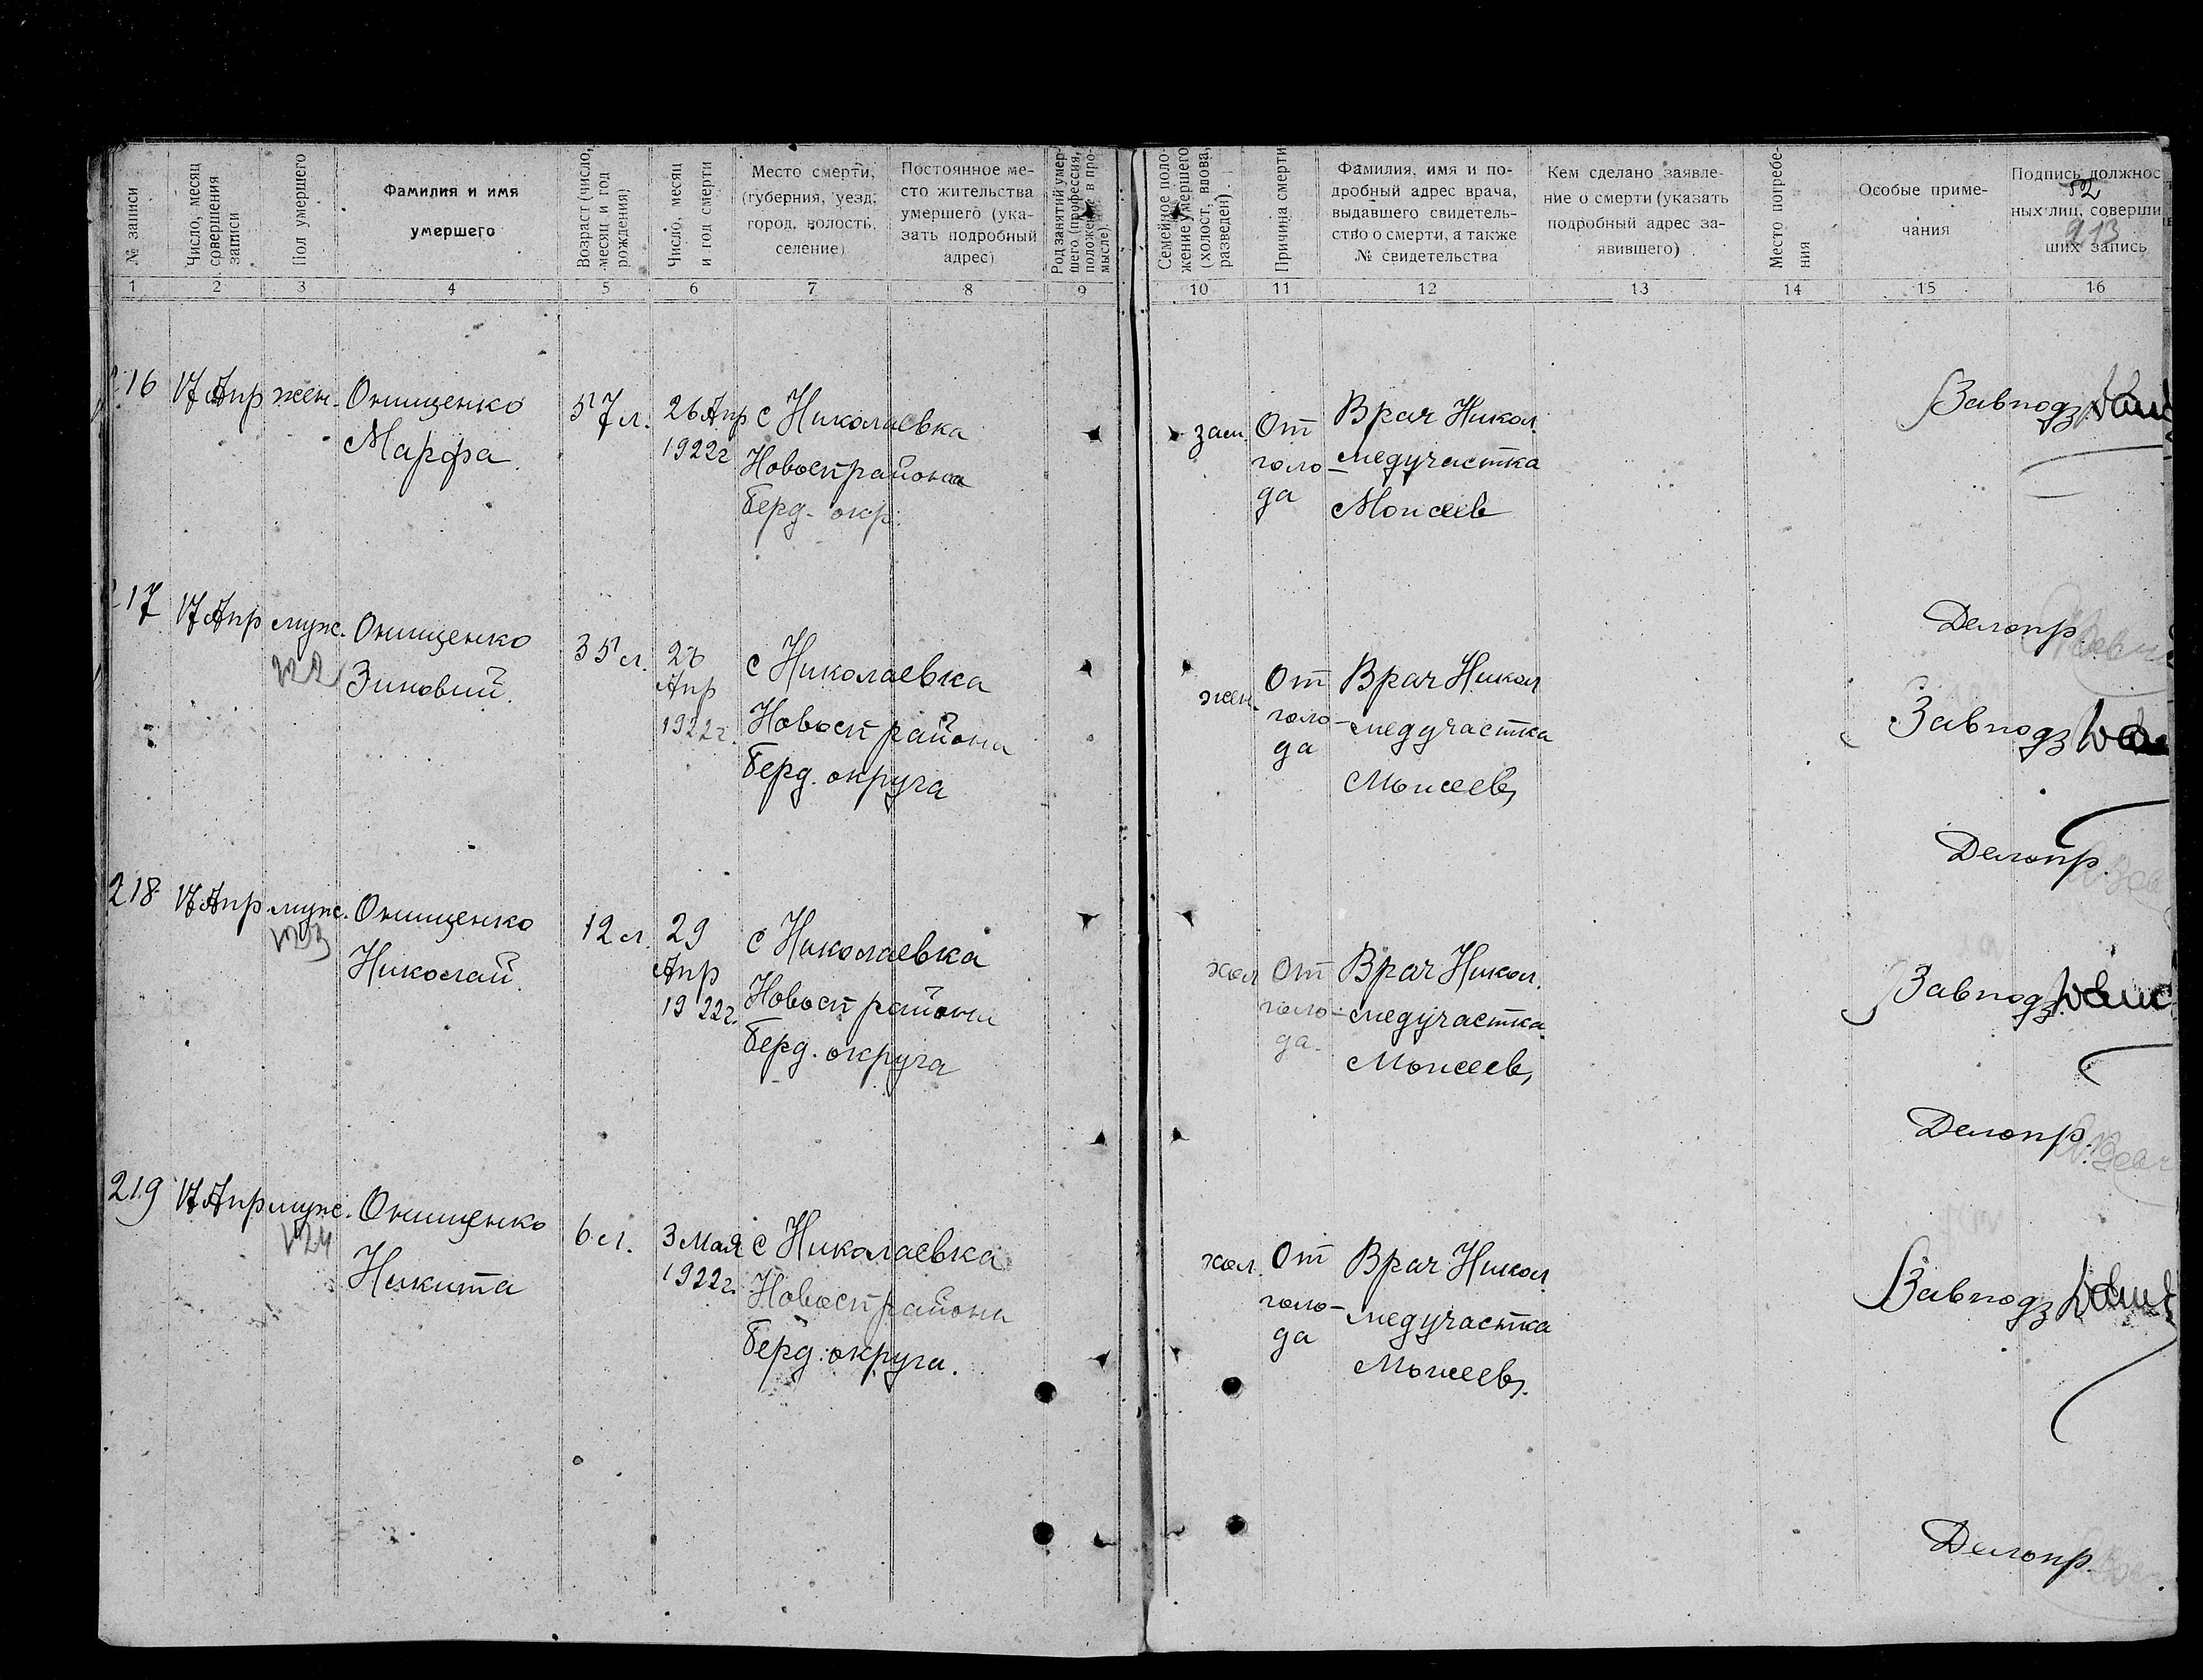 № записи
Число, месяц
совершения
записи
Пол умершего
Фамилия и имя
умершего
Возраст (число,
месяц и год
рождения)
Число, месяц
и год смерти
Место смерти,
(губерния, уезд,
город, волость,
селение)
Постоянное ме-
сто жительства
умершего (ука-
зать подробный
адрес)
Род занятий умер-
шего (профессия,
положение в про-
мысле).
Семейное поло-
жение умершего
(холост, вдова,
разведен)
Причина смерти
Фамилия, имя и по-
дробный адрес врача,
выдавшего свидетель-
ство о смерти, а также
№ свидетельства
Кем сделано заявле-
ние о смерти (указать
подробный адрес за-
явившего)
Место погребе-
ния
Особые приме-
чания
Подпись должнос
52
ных лиц, соверши
913
ших запись
1 2 3 4 5 6 7 8 9 10 11 12 13 14 15 16
216 17 Апр жен. Онищенко
Марфа
57 л.
26 Апр
1922г
с Николаевка
Новосп района
Берд. окр.
зам.
От
голо-
да
Врач Никол.
медучастка
Моисеев
Завподз
Делопр.
217 17 Апр муж. Онищенко
Зиновий.
35 л.
26
Апр
1922г.
с Николаевка
Новосп района
Берд. округа
жен.
От
голо-
да
Врач Никол
медучастка
Моисеев
Завподз
Делопр.
218 17 Апр муж. Онищенко
Николай.
12 л.
29
Апр
1922г.
с Николаевка
Новосп района
Берд. округа
хол
От
голо-
да.
Врач Никол.
медучастка
Моисеев
Завподз.
Делопр.
219 17 Апр муж. Онищенко
Никита
6 л.
3 мая
1922г.
с Николаевка
Новосп района
Берд. округа.
хол.
От
голо-
да
Врач Никол
медучастка
Моисеев.
Завподз
Делопр.